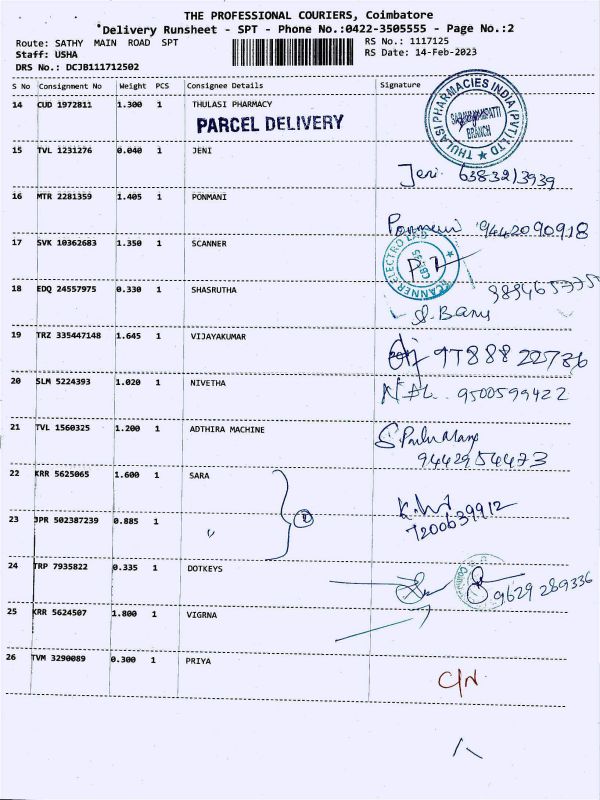 THE PROFESSIONAL COURIERS, Coimbatore
Delivery Runsheet - SPT - Phone No.:0422-3505555 - Page No.:2
Route: SATHY MAIN ROAD SPT
RS No.: 1117125
Staff: USHA
RS Date: 14-Feb-2023
DRS No.: DCJB111712502
S No Consignment No Weight PCS Consignee Details Signature
14 CUD 1972811 1.300 1 THULASI PHARMACY
PARCEL DELIVERY
THULASI PHARMACIES INDIA (PVT) LTD
SARAVANAMPATTI
BRANCH
15 TVL 1231276 0.040 1 JENI
Jeni 6383213939
16 MTR 2281359 1.405 1 PONMANI
Ponmani 9442090918
17 SVK 10362683 1.350 1 SCANNER
SCANNER ELECTRO LAB
CBE-35
18 EDQ 24557975 0.330 1 SHASRUTHA
S. Banu
19 TRZ 335447148 1.645 1 VIJAYAKUMAR
9788822736
20 SLM 5224393 1.020 1 NIVETHA
9500599422
21 TVL 1560325 1.200 1 ADTHIRA MACHINE
9442954473
22 KRR 5625065 1.600 1 SARA
7200639912
23 JPR 502387239 0.885 1 "
24 TRP 7935822 0.335 1 DOTKEYS
9629289336
25 KRR 5624507 1.800 1 VIGRNA
26 TVM 3290089 0.300 1 PRIYA
C/N